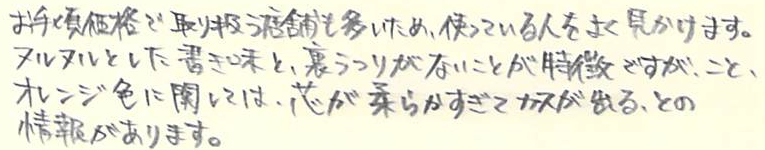 お手頃価格で取り扱う店舗も多いため、使っている人をよく見かけます。
ヌルヌルとした書き味と、裏うつりがないことが特徴ですが、こと、
オレンジ色に関しては、芯が柔らかすぎてカスが出る、との
情報があります。